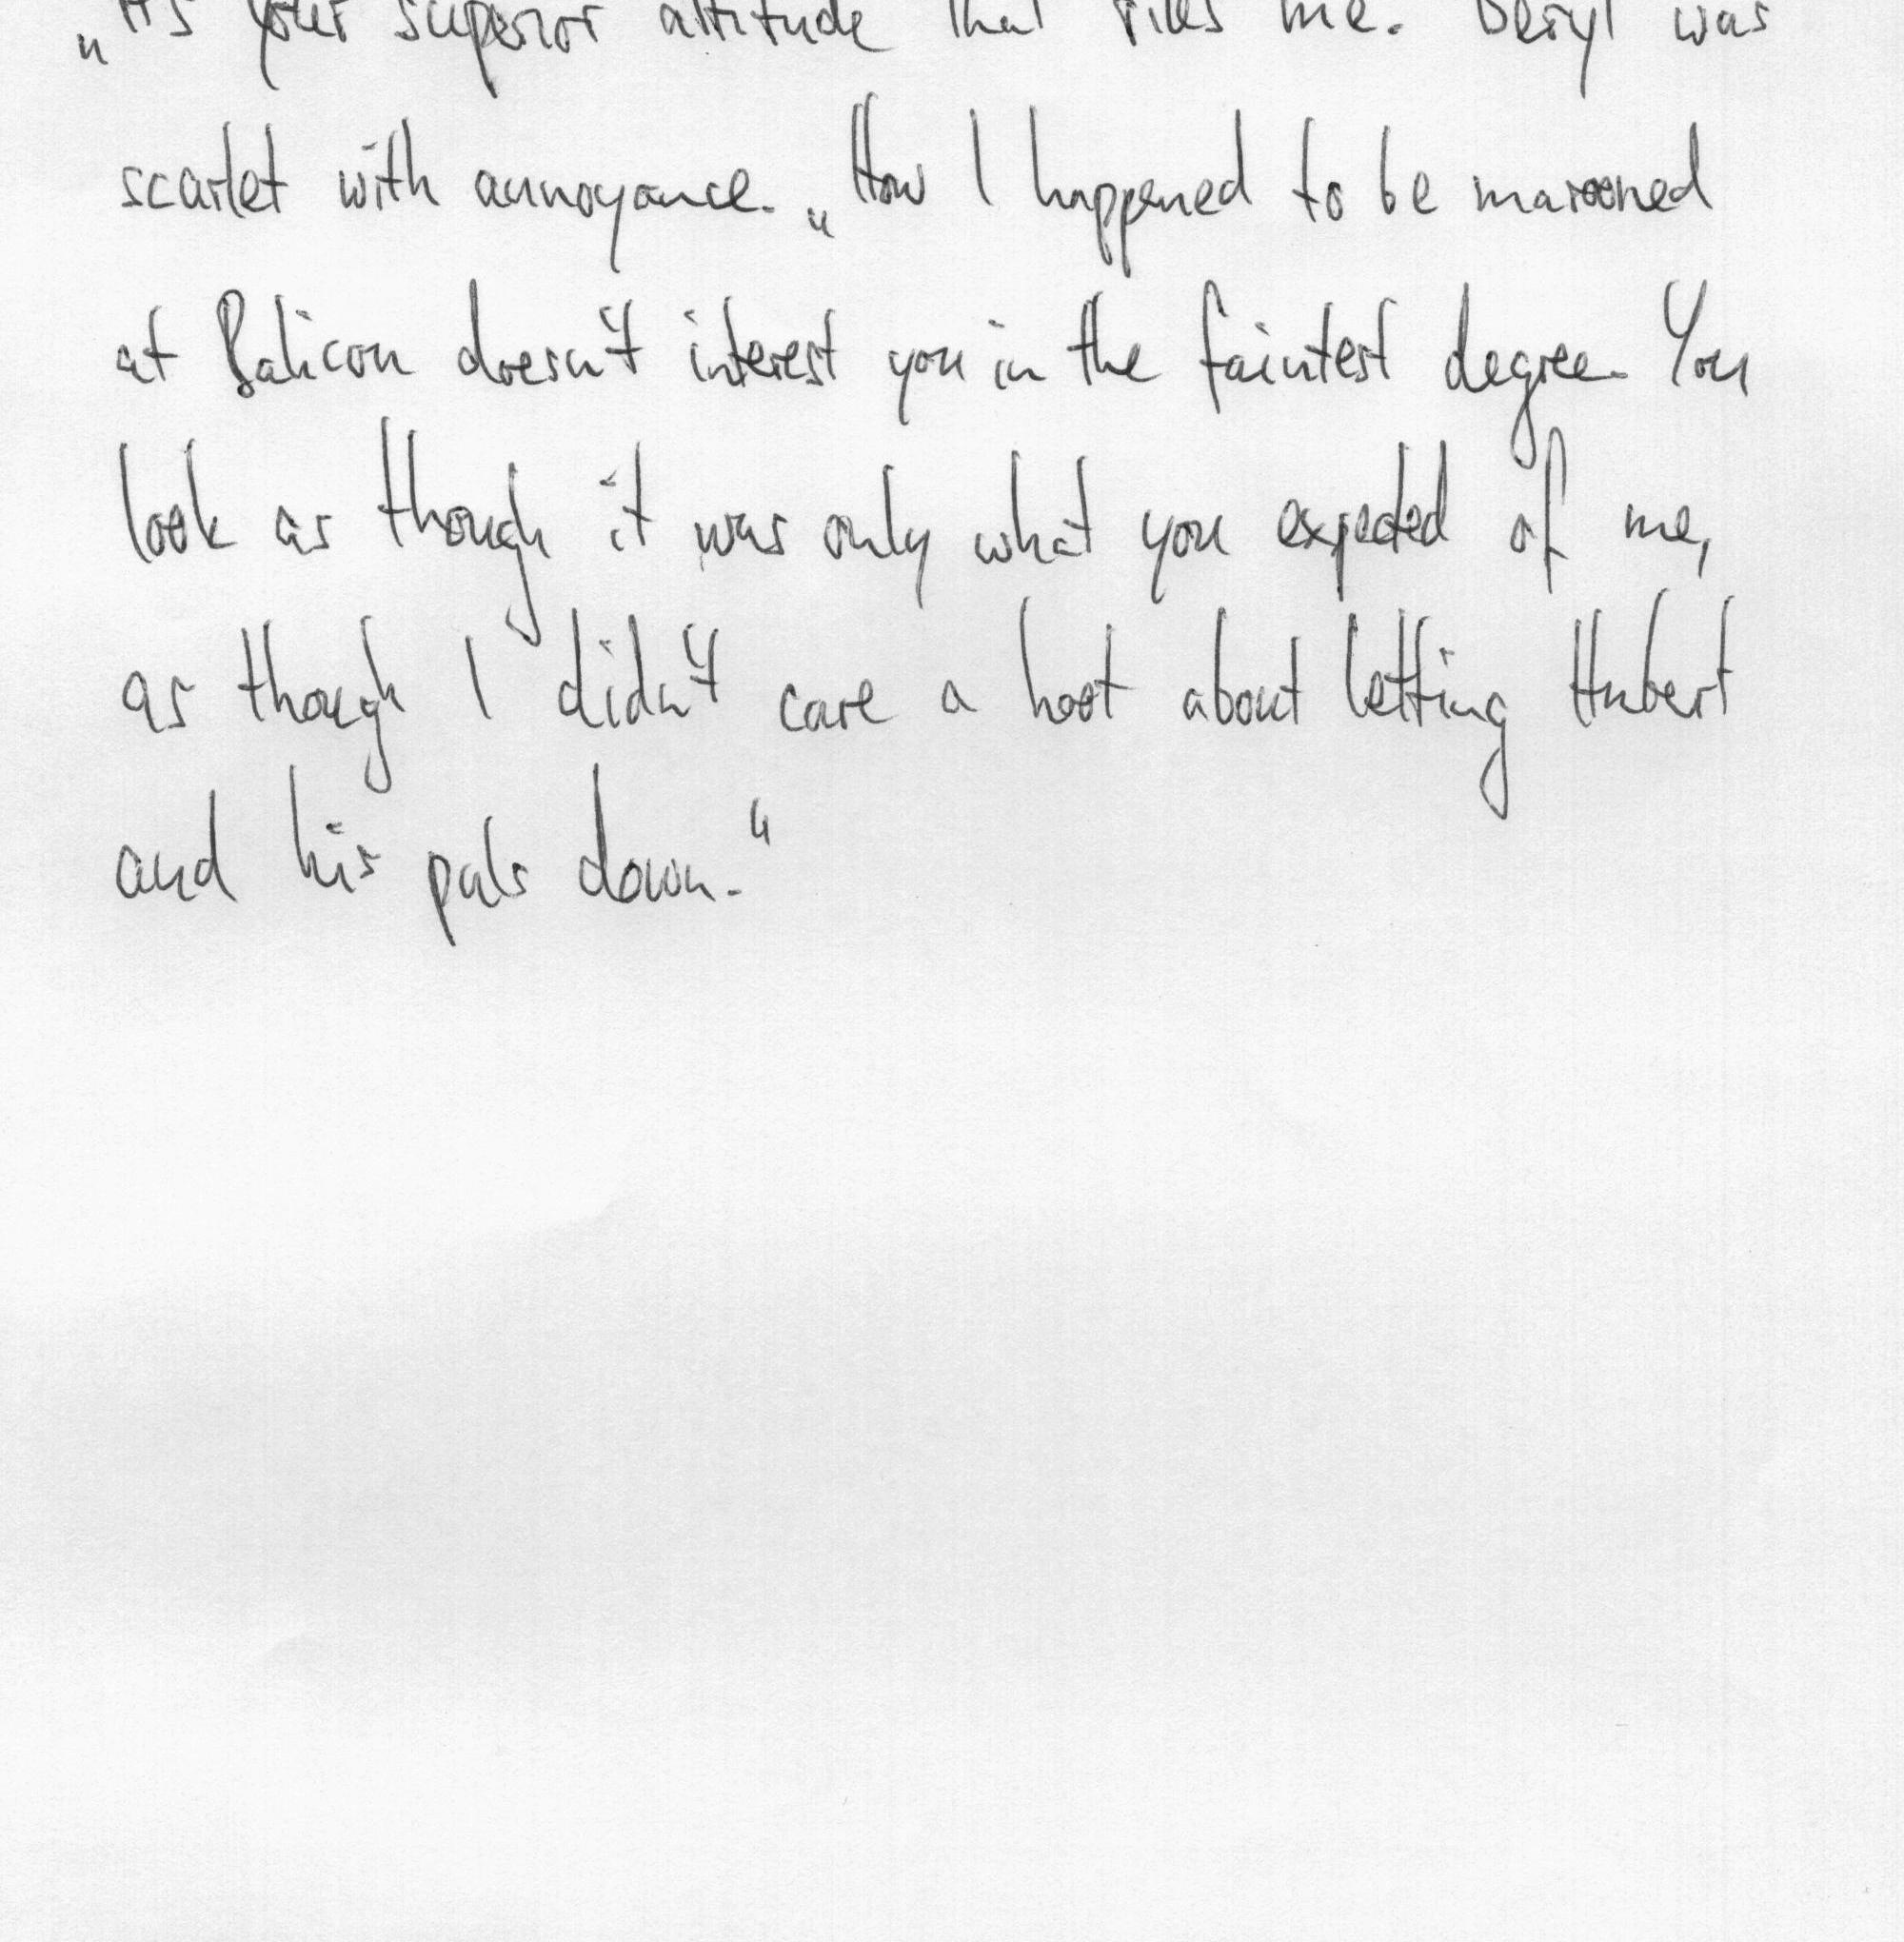 „It's your superior attitude that riles me. Beryl was
scarlet with annoyance. „How I happened to be marooned
at Balicon doesn't interest you in the faintest degree. You
look as though it was only what you expected of me,
as though I didn't care a hoot about letting Hubert
and his pals down."